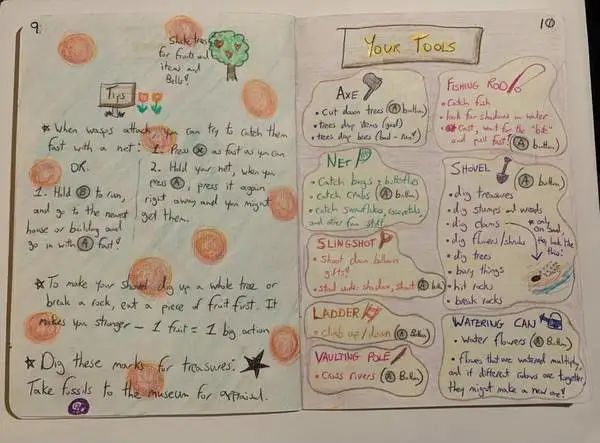 9
Shake trees
for fruits and
items and
Bells!
Tips
★ When wasps attack you can try to catch them
fast with a net:
1. Press Ⓧ as fast as you can
OR
2. Hold your net, when you
press Ⓐ, press it again
right away and you might
get them.
1. Hold Ⓑ to run,
and go to the nearest
house or building and
go in with Ⓐ fast!
★ To make your shovel dig up a whole tree or
break a rock, eat a piece of fruit first. It
makes you stronger - 1 fruit = 1 big action
★ Dig these marks for treasures: ★
Take fossils to the museum for appraisal.
10
YOUR TOOLS
AXE
• Cut down trees (Ⓐ button)
• trees drop items (good)
• trees drop bees (bad - run!)
FISHING ROD
• Catch fish
• look for shadows in water
• Cast, wait for the "bite"
and pull fast! (Ⓐ button)
NET
• Catch bugs + butterflies
• catch crabs (Ⓐ button)
• catch snowflakes, essentials,
and other fun stuff
SHOVEL
(Ⓐ button)
• dig treasures
• dig stumps and weeds
• dig clams
• dig flowers/shrubs
• dig trees
• bury things
• hit rocks
• break rocks
* only
on sand,
they look like
this:
SLINGSHOT
• Shoot down balloon
gifts!
• stand under shadow, shoot (Ⓐ button)
LADDER
• climb up/down (Ⓐ Button)
VAULTING POLE
• Cross rivers (Ⓐ Button)
WATERING CAN
• Water flowers (Ⓐ Button)
• flowers that are watered multiply,
and if different colours are together,
they might make a new one!